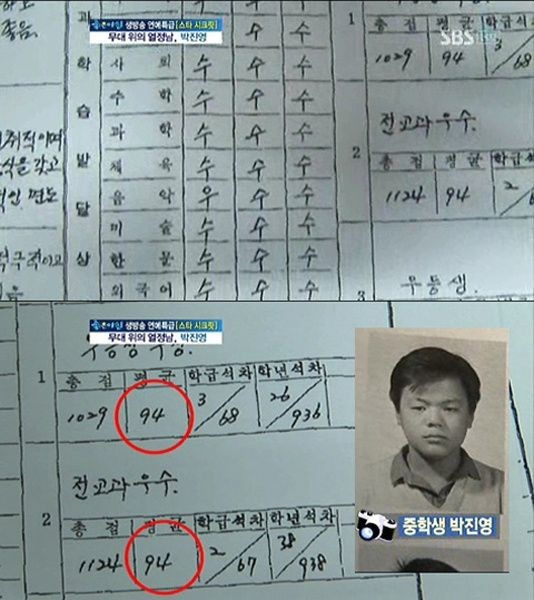 좋은아침 생방송 연예특급 [스타 시크릿]
무대 위의 열정남, 박진영
SBS
좋음.
과
학 사회 수 수 수
수학 수 수 수
습 과학 수 수 수
체육 수 수 수
발 음악 우 수 수
미술 수 수 수
달
상 한문 수 수 수
외국어 수 수 수
총점 평균 학급석차
1029 94 3/68
전교과 우수.
2
총점 평균 학급석
1124 94 2/6
3 우등생.
좋은아침 생방송 연예특급 [스타 시크릿]
무대 위의 열정남, 박진영
1
총점 평균 학급석차 학년석차
1029 94 3/68 26/936
전교과 우수.
2
총점 평균 학급석차 학년석차
1124 94 2/67 38/938
중학생 박진영